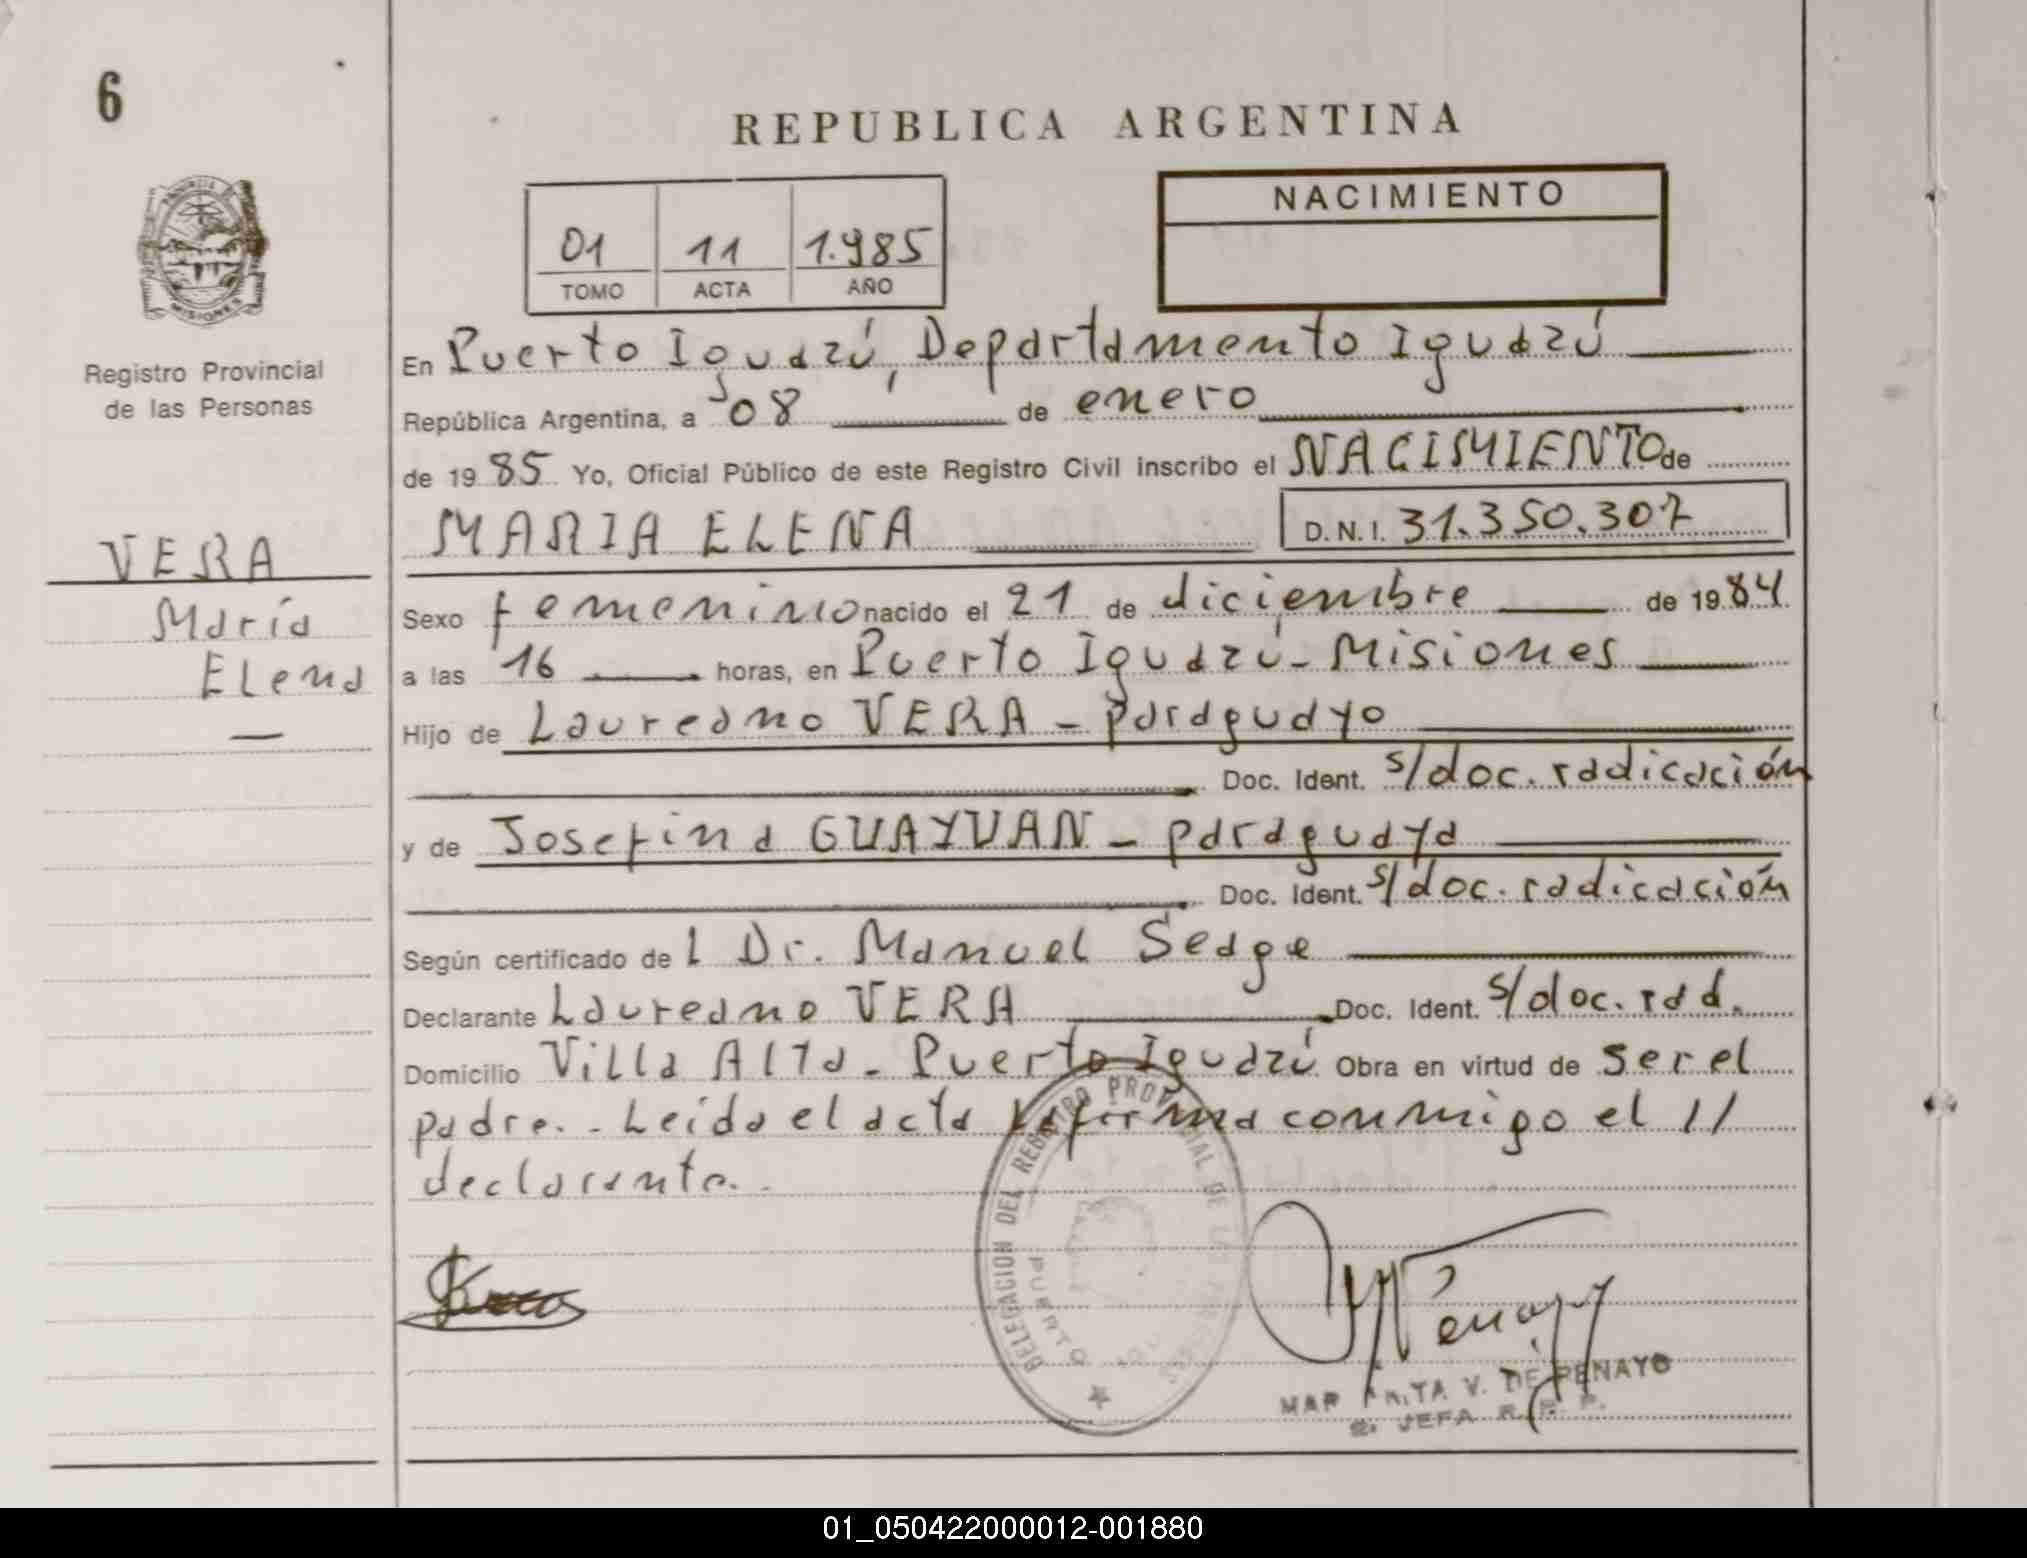 6
REPUBLICA ARGENTINA
PROVINCIA D
MISIONES
Registro Provincial
de las Personas
VERA
María
Elena
—
01 11 1.985
TOMO ACTA AÑO
NACIMIENTO
En Puerto Iguazú, Departamento Iguazú
República Argentina, a 08 de enero
de 1985 Yo, Oficial Público de este Registro Civil inscribo el NACIMIENTO de
MARIA ELENA D.N.I. 31.350.307
Sexo femenino nacido el 21 de diciembre de 1984
a las 16 horas, en Puerto Iguazú - Misiones
Hijo de Laureano VERA - paraguayo
Doc. Ident. s/doc. radicación
y de Josefina GUAYUAN - paraguaya
Doc. Ident. s/doc. radicación
Según certificado de l Dr. Manuel Seage
Declarante Laureano VERA Doc. Ident. s/doc. rad.
Domicilio Villa Alta - Puerto Iguazú Obra en virtud de ser el
padre. - Leída el acta la firma conmigo el //
declarante. -
DELEGACION DEL REGISTRO PROVINCIAL DE
Penayo
V. DE PENAYO
JEFA R. P. P.
01_050422000012-001880